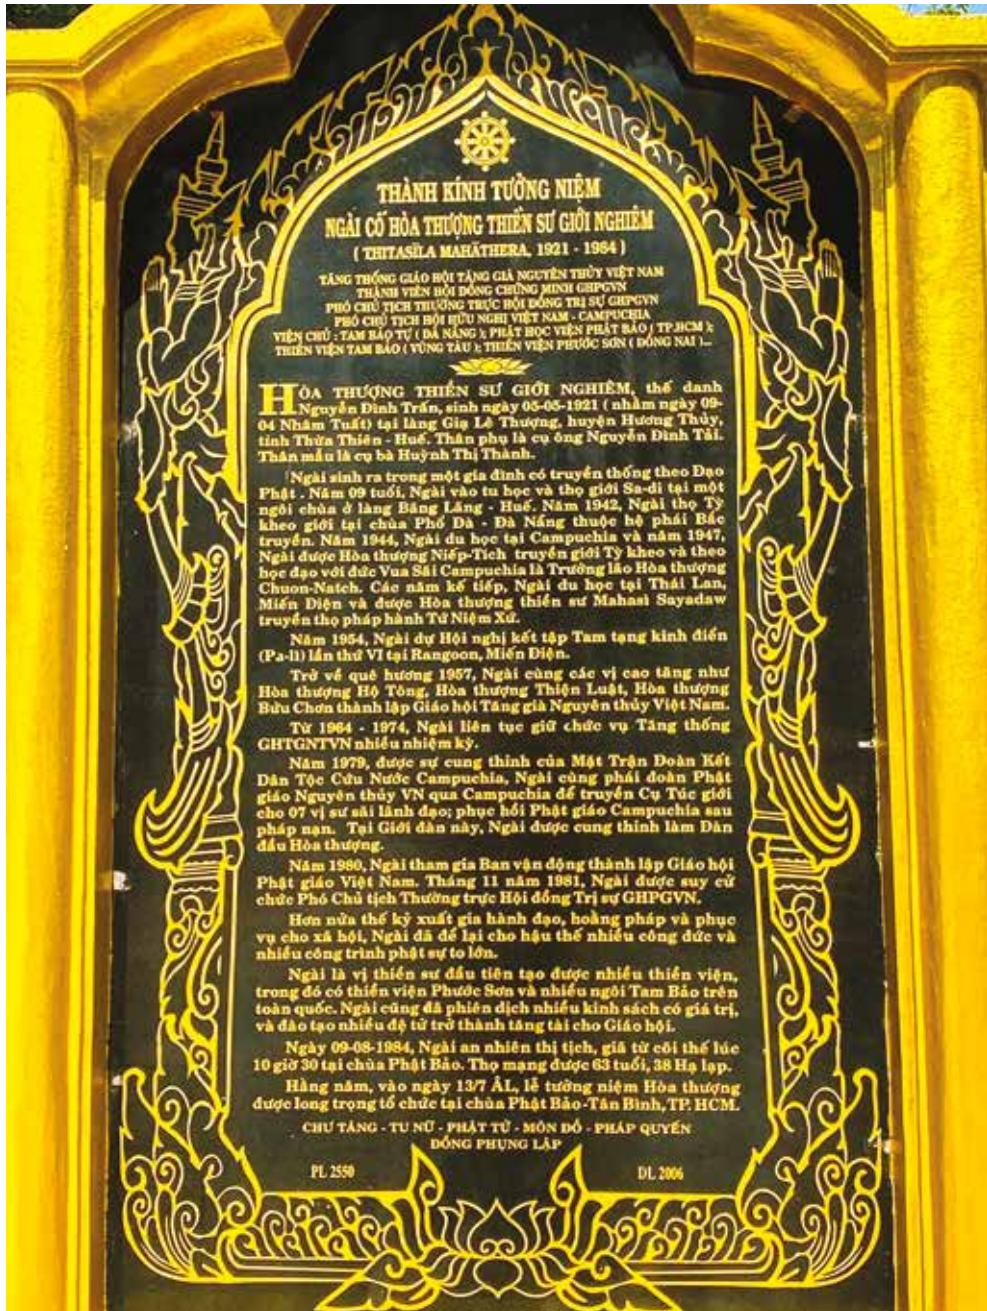 THÀNH KÍNH TƯỞNG NIỆM
NGÀI CỐ HÒA THƯỢNG THIỀN SƯ GIỚI NGHIÊM
( THITASĪLA MAHĀTHERA, 1921 - 1984 )
TĂNG THỐNG GIÁO HỘI TĂNG GIÀ NGUYÊN THỦY VIỆT NAM
THÀNH VIÊN HỘI ĐỒNG CHỨNG MINH GHPGVN
PHÓ CHỦ TỊCH THƯỜNG TRỰC HỘI ĐỒNG TRỊ SỰ GHPGVN
PHÓ CHỦ TỊCH HỘI HỮU NGHỊ VIỆT NAM - CAMPUCHIA
VIỆN CHỦ : TAM BẢO TỰ ( ĐÀ NẴNG ); PHẬT HỌC VIỆN PHẬT BẢO ( TP.HCM );
THIỀN VIỆN TAM BẢO ( VŨNG TÀU ); THIỀN VIỆN PHƯỚC SƠN ( ĐỒNG NAI )...
HÒA THƯỢNG THIỀN SƯ GIỚI NGHIÊM, thế danh
Nguyễn Đình Trấn, sinh ngày 05-05-1921 ( nhằm ngày 09-
04 Nhâm Tuất) tại làng Giạ Lê Thượng, huyện Hương Thủy,
tỉnh Thừa Thiên - Huế. Thân phụ là cụ ông Nguyễn Đình Tải.
Thân mẫu là cụ bà Huỳnh Thị Thành.
Ngài sinh ra trong một gia đình có truyền thống theo Đạo
Phật . Năm 09 tuổi, Ngài vào tu học và thọ giới Sa-di tại một
ngôi chùa ở làng Băng Lãng - Huế. Năm 1942, Ngài thọ Tỳ
kheo giới tại chùa Phổ Đà - Đà Nẵng thuộc hệ phái Bắc
truyền. Năm 1944, Ngài du học tại Campuchia và năm 1947,
Ngài được Hòa thượng Niếp-Tích truyền giới Tỳ kheo và theo
học đạo với đức Vua Sãi Campuchia là Trưởng lão Hòa thượng
Chuon-Natch. Các năm kế tiếp, Ngài du học tại Thái Lan,
Miến Điện và được Hòa thượng thiền sư Mahasi Sayadaw
truyền thọ pháp hành Tứ Niệm Xứ.
Năm 1954, Ngài dự Hội nghị kết tập Tam tạng kinh điển
(Pa-li) lần thứ VI tại Rangoon, Miến Điện.
Trở về quê hương 1957, Ngài cùng các vị cao tăng như
Hòa thượng Hộ Tông, Hòa thượng Thiện Luật, Hòa thượng
Bửu Chơn thành lập Giáo hội Tăng già Nguyên thủy Việt Nam.
Từ 1964 - 1974, Ngài liên tục giữ chức vụ Tăng thống
GHTGNTVN nhiều nhiệm kỳ.
Năm 1979, được sự cung thỉnh của Mặt Trận Đoàn Kết
Dân Tộc Cứu Nước Campuchia, Ngài cùng phái đoàn Phật
giáo Nguyên thủy VN qua Campuchia để truyền Cụ Túc giới
cho 07 vị sư sãi lãnh đạo; phục hồi Phật giáo Campuchia sau
pháp nạn. Tại Giới đàn này, Ngài được cung thỉnh làm Đàn
đầu Hòa thượng.
Năm 1980, Ngài tham gia Ban vận động thành lập Giáo hội
Phật giáo Việt Nam. Tháng 11 năm 1981, Ngài được suy cử
chức Phó Chủ tịch Thường trực Hội đồng Trị sự GHPGVN.
Hơn nửa thế kỷ xuất gia hành đạo, hoằng pháp và phục
vụ cho xã hội, Ngài đã để lại cho hậu thế nhiều công đức và
nhiều công trình phật sự to lớn.
Ngài là vị thiền sư đầu tiên tạo được nhiều thiền viện,
trong đó có thiền viện Phước Sơn và nhiều ngôi Tam Bảo trên
toàn quốc. Ngài cũng đã phiên dịch nhiều kinh sách có giá trị,
và đào tạo nhiều đệ tử trở thành tăng tài cho Giáo hội.
Ngày 09-08-1984, Ngài an nhiên thị tịch, giã từ cõi thế lúc
10 giờ 30 tại chùa Phật Bảo. Thọ mạng được 63 tuổi, 38 Hạ lạp.
Hằng năm, vào ngày 13/7 ÂL, lễ tưởng niệm Hòa thượng
được long trọng tổ chức tại chùa Phật Bảo-Tân Bình, TP. HCM.
CHƯ TĂNG - TU NỮ - PHẬT TỬ - MÔN ĐỒ - PHÁP QUYẾN
ĐỒNG PHỤNG LẬP
PL 2550 DL 2006